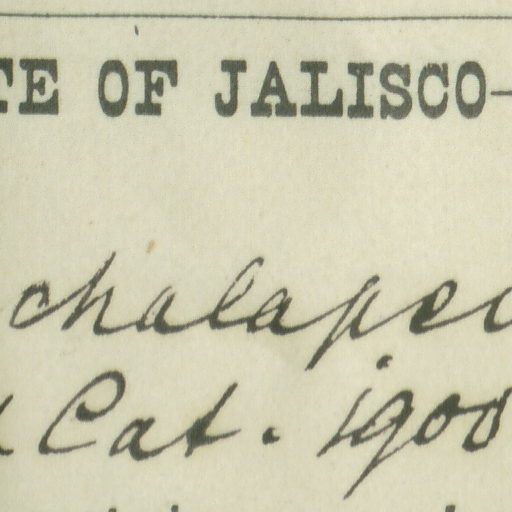 TE OF JALISCO—
chalapen
Cat. 1900